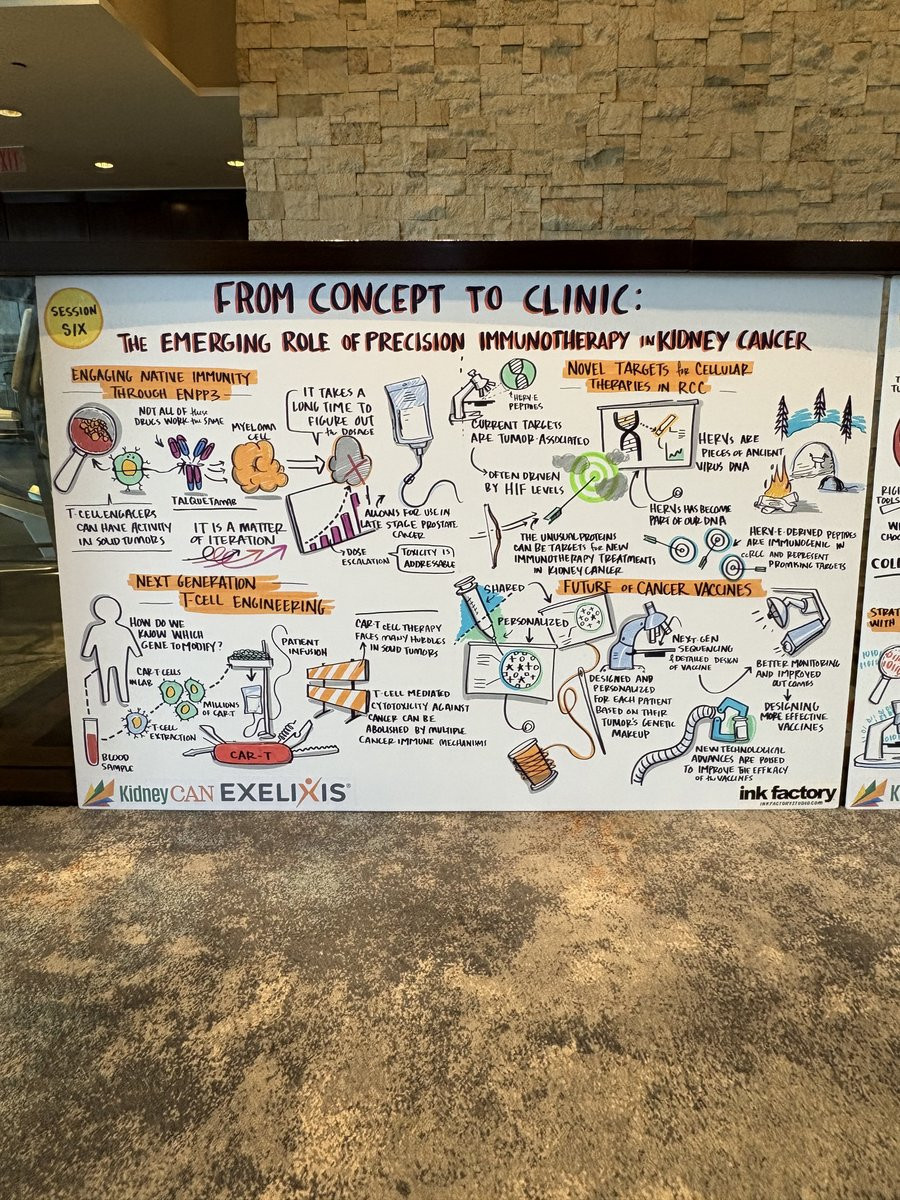 EXIT
SESSION
SIX
FROM CONCEPT TO CLINIC:
THE EMERGING ROLE OF PRECISION IMMUNOTHERAPY IN KIDNEY CANCER
ENGAGING NATIVE IMMUNITY
THROUGH ENPP3
NOT ALL OF these
DRUGS WORK the SAME
MYELOMA
CELL
IT TAKES A
LONG TIME TO
FIGURE OUT
the DOSAGE
TALQUETAMAB
T-CELL ENGAGERS
CAN HAVE ACTIVITY
IN SOLID TUMORS
IT IS A MATTER
OF ITERATION
DOSE
ESCALATION
ALLOWS FOR USE IN
LATE STAGE PROSTATE
CANCER
TOXICITY IS
ADDRESSABLE
NOVEL TARGETS for CELLULAR
THERAPIES IN RCC
HERV-E
PEPTIDES
CURRENT TARGETS
ARE TUMOR-ASSOCIATED
OFTEN DRIVEN
BY HIF LEVELS
THE UNUSUAL PROTEINS
CAN BE TARGETS for NEW
IMMUNOTHERAPY TREATMENTS
IN KIDNEY CANCER
HERVs ARE
PIECES OF ANCIENT
VIRUS DNA
HERVs HAS BECOME
PART OF OUR DNA
HERV-E-DERIVED PEPTIDES
ARE IMMUNOGENIC IN
ccRCC AND REPRESENT
PROMISING TARGETS
NEXT GENERATION
T-CELL ENGINEERING
HOW DO WE
KNOW WHICH
GENE TO MODIFY?
CAR-T CELLS
IN LAB
MILLIONS
OF CAR-T
T-CELL
EXTRACTION
BLOOD
SAMPLE
PATIENT
INFUSION
CAR-T
CAR-T CELL THERAPY
FACES MANY HURDLES
IN SOLID TUMORS
T-CELL MEDIATED
CYTOTOXICITY AGAINST
CANCER CAN BE
ABOLISHED BY MULTIPLE
CANCER IMMUNE MECHANISMS
FUTURE OF CANCER VACCINES
SHARED
PERSONALIZED
DESIGNED AND
PERSONALIZED
FOR EACH PATIENT
BASED ON THEIR
TUMOR'S GENETIC
MAKEUP
NEXT-GEN
SEQUENCING
& DETAILED DESIGN
of VACCINE
BETTER MONITORING
AND IMPROVED
OUTCOMES
DESIGNING
MORE EFFECTIVE
VACCINES
NEW TECHNOLOGICAL
ADVANCES ARE POISED
TO IMPROVE THE EFFICACY
of the VACCINES
KidneyCAN EXELIXIS®
ink factory
INKFACTORYSTUDIO.COM